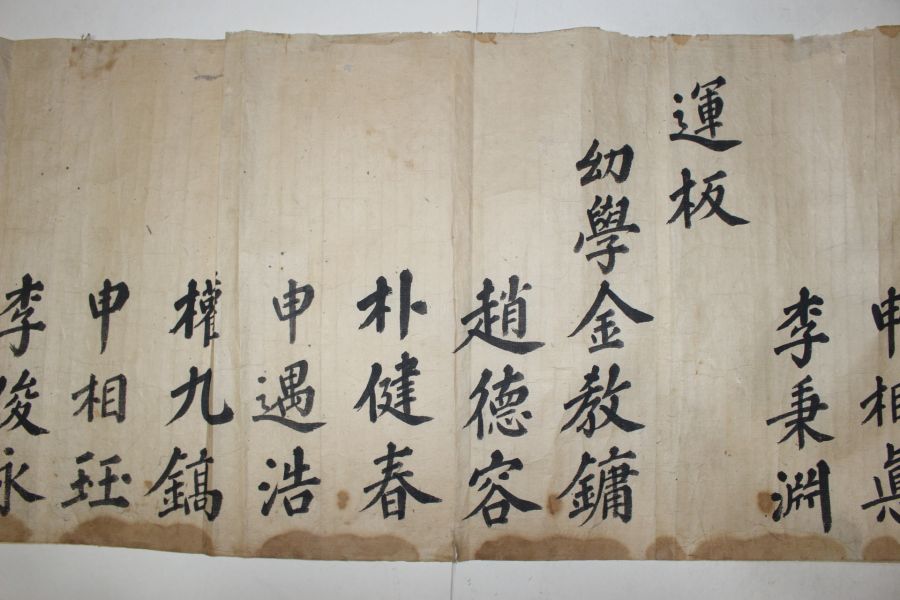 申相眞
李秉淵
運板
幼學金敎鏞
趙德容
朴健春
申遇浩
權九鎬
申相珏
李俊永